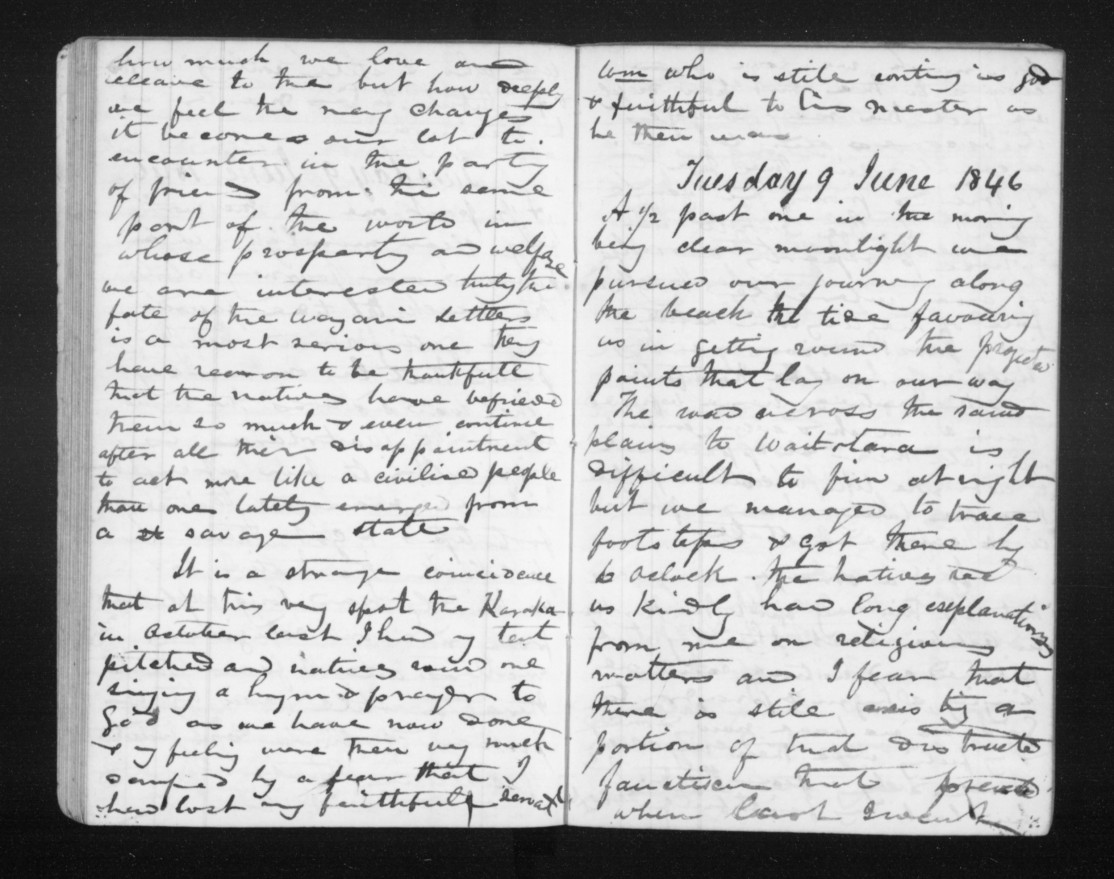 how much we love and
cleave to the but how deeply
we feel the many changes
it becomes our lot to
encounter in the party
of friends from the same
part of the world in
whose prosperity and welfare
we are interested truly the
fate of the settlers
is a most serious one they
have reason to be thankfull
that the natives have befriended
them so much & even continue
after all their disappointment
to act more like a civilised people
than one lately emerged from
a savage state
It is a strange coincidence
that at this very spot the Karaka
in October last I had my tent
pitched and natives round me
singing a hymn & prayer to
God as we have now done
& my feelings were then very much
damped by a fear that I
had lost my faithfull servant
who is still continuing as good
& faithful to his master as
he then was
Tuesday 9 June 1846
At 1/2 past one in the morning
being clear moonlight we
pursued our journey along
the beach the tide favouring
us in getting round the projecting
points that lay on our way
The road across the sand
plains to Waitotara is
difficult to find at night
but we managed to trace
footsteps & got there by
6 Oclock. the natives recd
us kindly had long explanations
from me on religious
matters and I fear that
there is still existing a
portion of that
fanaticism that
when last I went